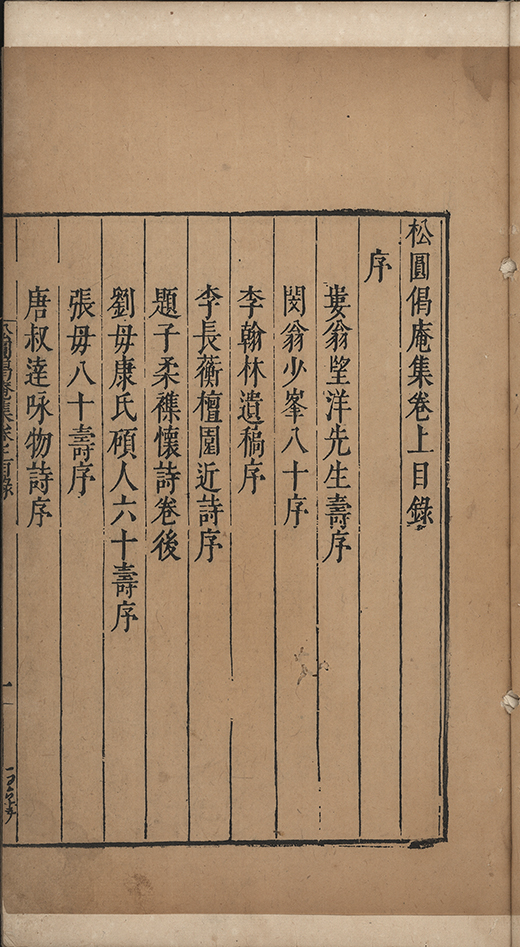 松圓偈庵集卷上目錄
序
婁翁望洋先生壽序
閔翁少峯八十序
李翰林遺稿序
李長蘅檀園近詩序
題子柔襍懷詩卷後
劉母康氏碩人六十壽序
張母八十壽序
唐叔達咏物詩序
松圓偈庵集卷上目錄
一